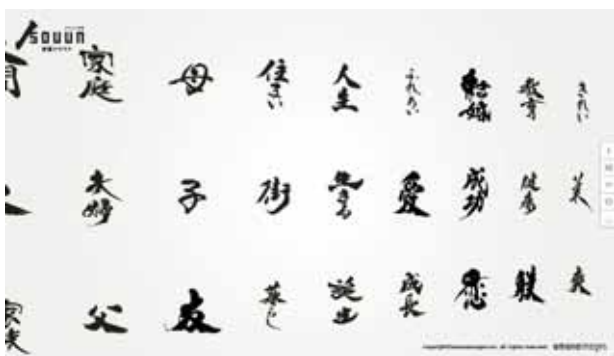 souun
家庭 母 住まい 人生 ふれあい 結婚 教育 きれい
夫婦 子 街 生きる 愛 成功 健康 美
父 友 暮らし 誕生 成長 恋